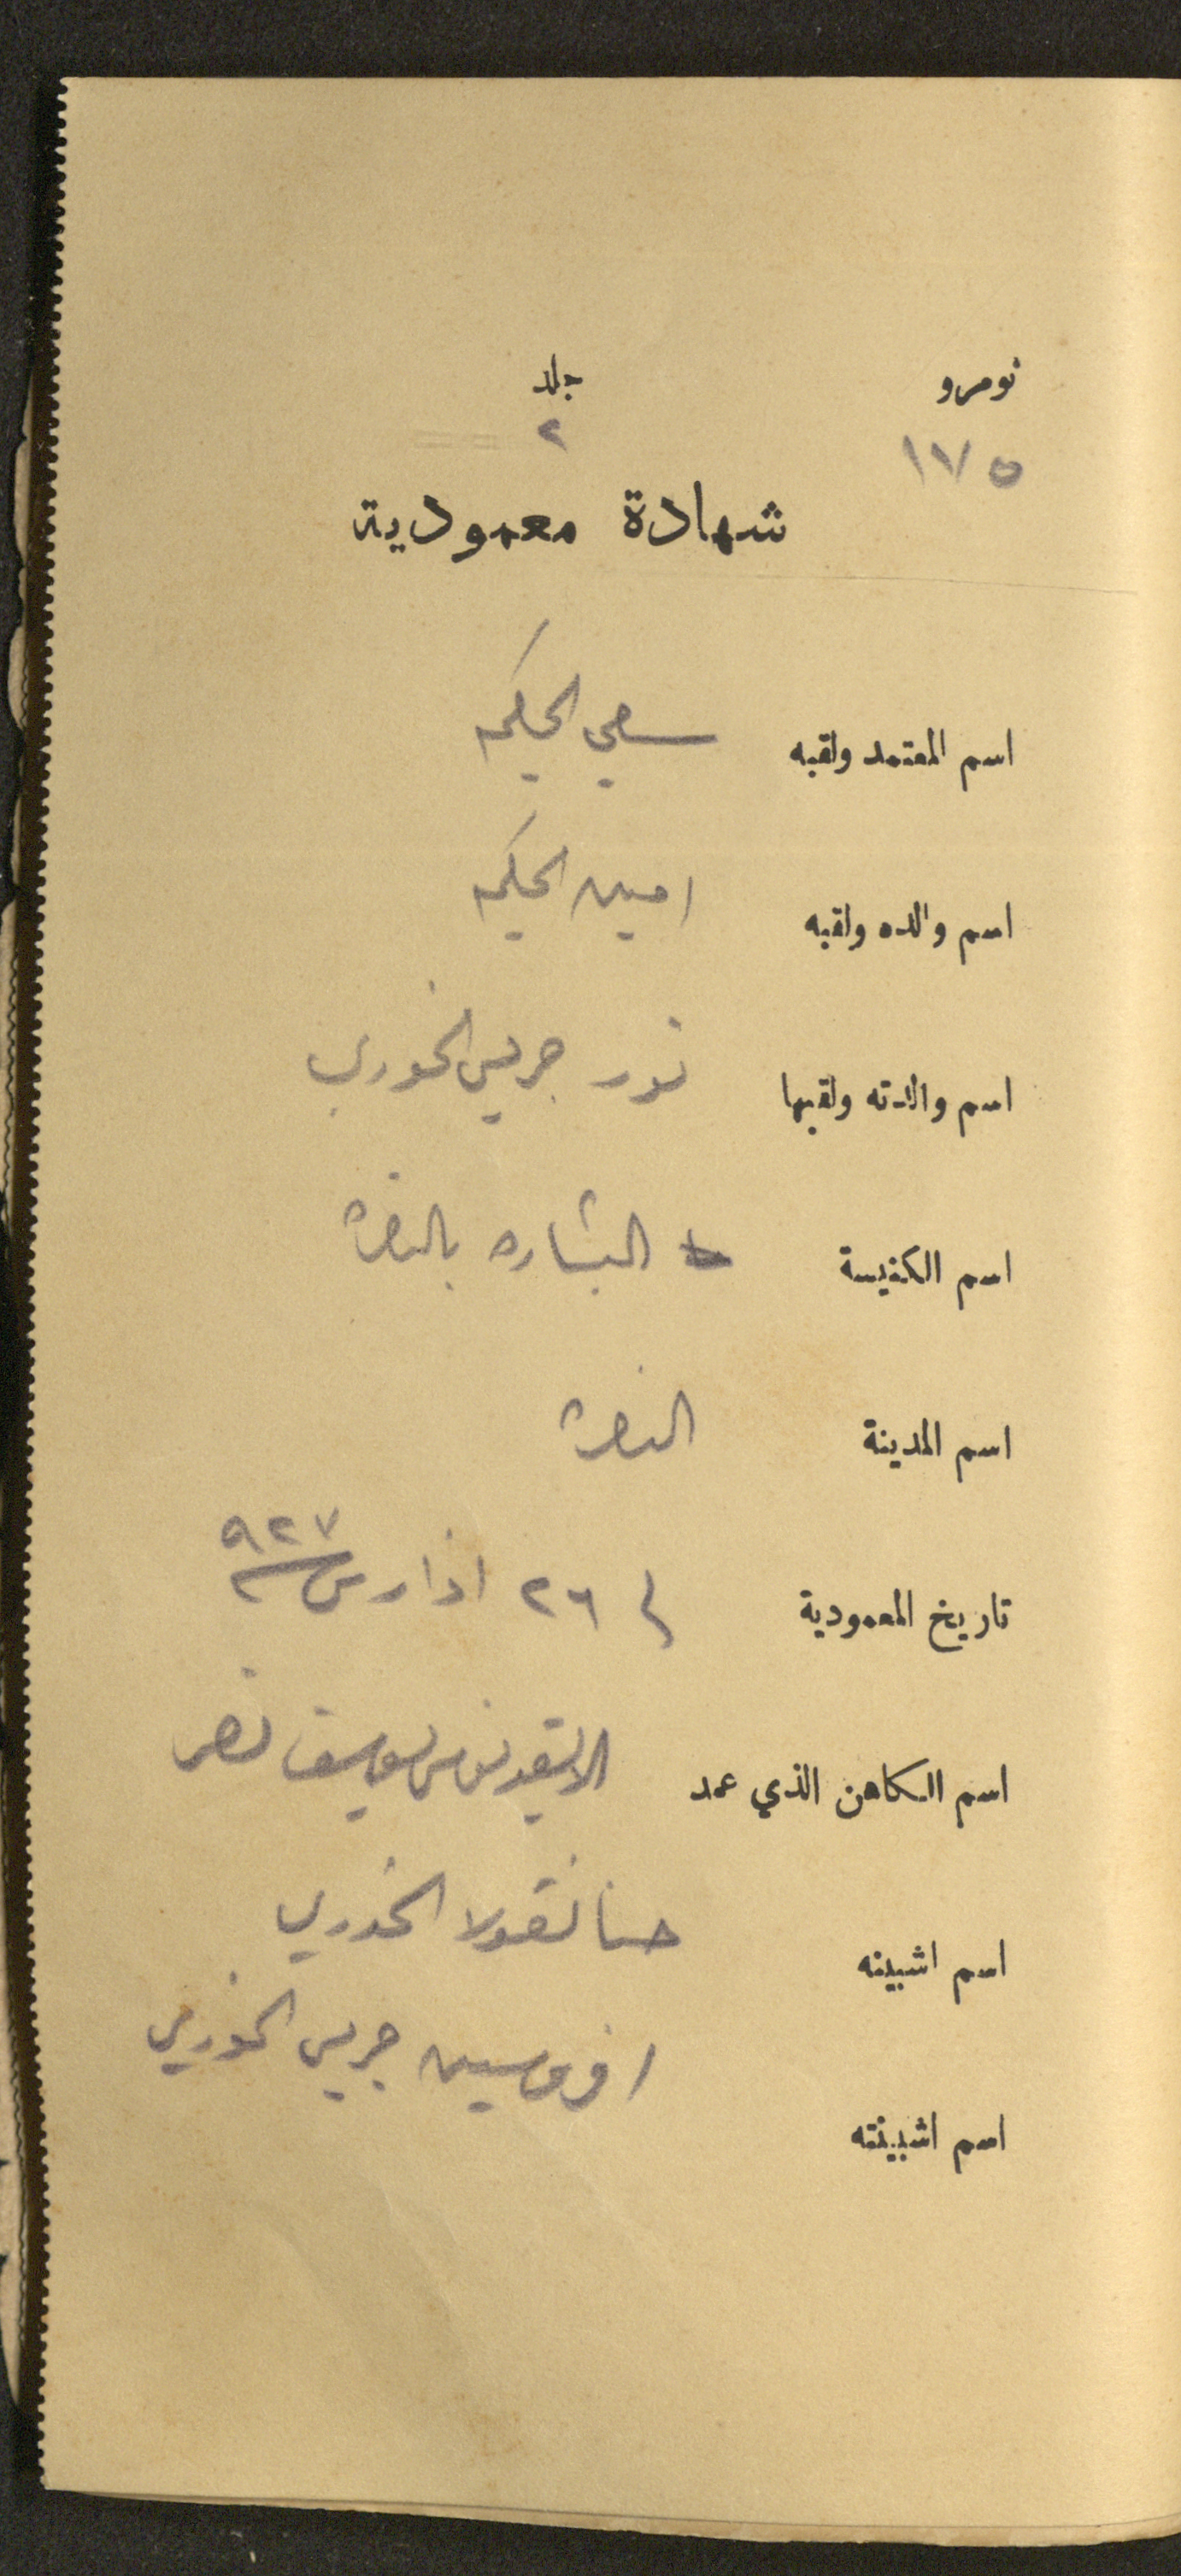 نومرو جلد
١٧٥ ٢
شهادة معمودية
اسم المعتمد ولقبه الحكيم
اسم والده ولقبه امين الحكيم
اسم والدته ولقبها نور جريس الخوري
اسم الكنيسة البشاره بالناصرة
اسم المدينة الناصرة
تاريخ المعمودية ٢٦ اذار سنة ٩٢٧
اسم الكاهن الذي عمد الايقونوس يوسف نصر
اسم اشبينه حنا نقولا الخوري
افروسين جريس الخوري
اسم اشبينته